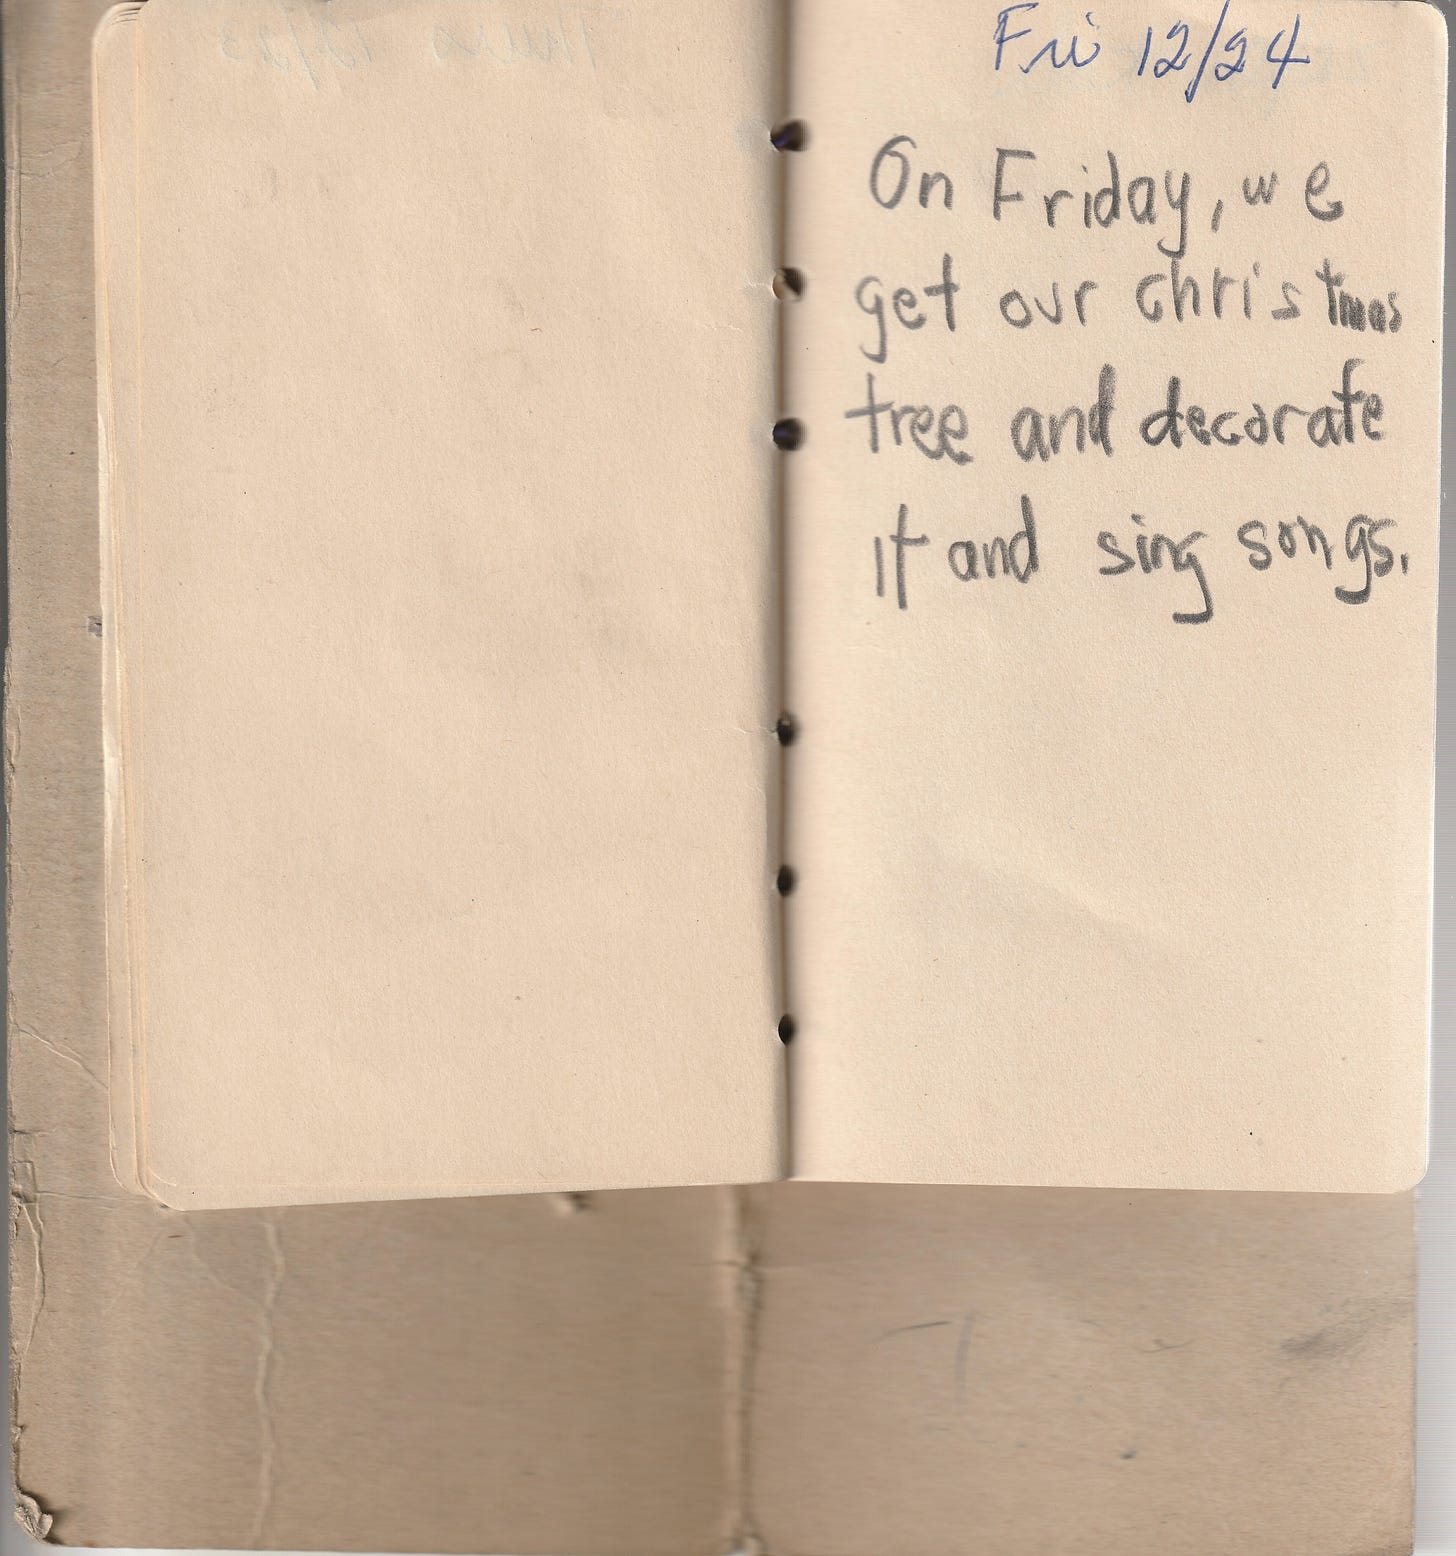 Thurs 12/23
Fri 12/24
On Friday, we
get our christmas
tree and decorate
it and sing songs.